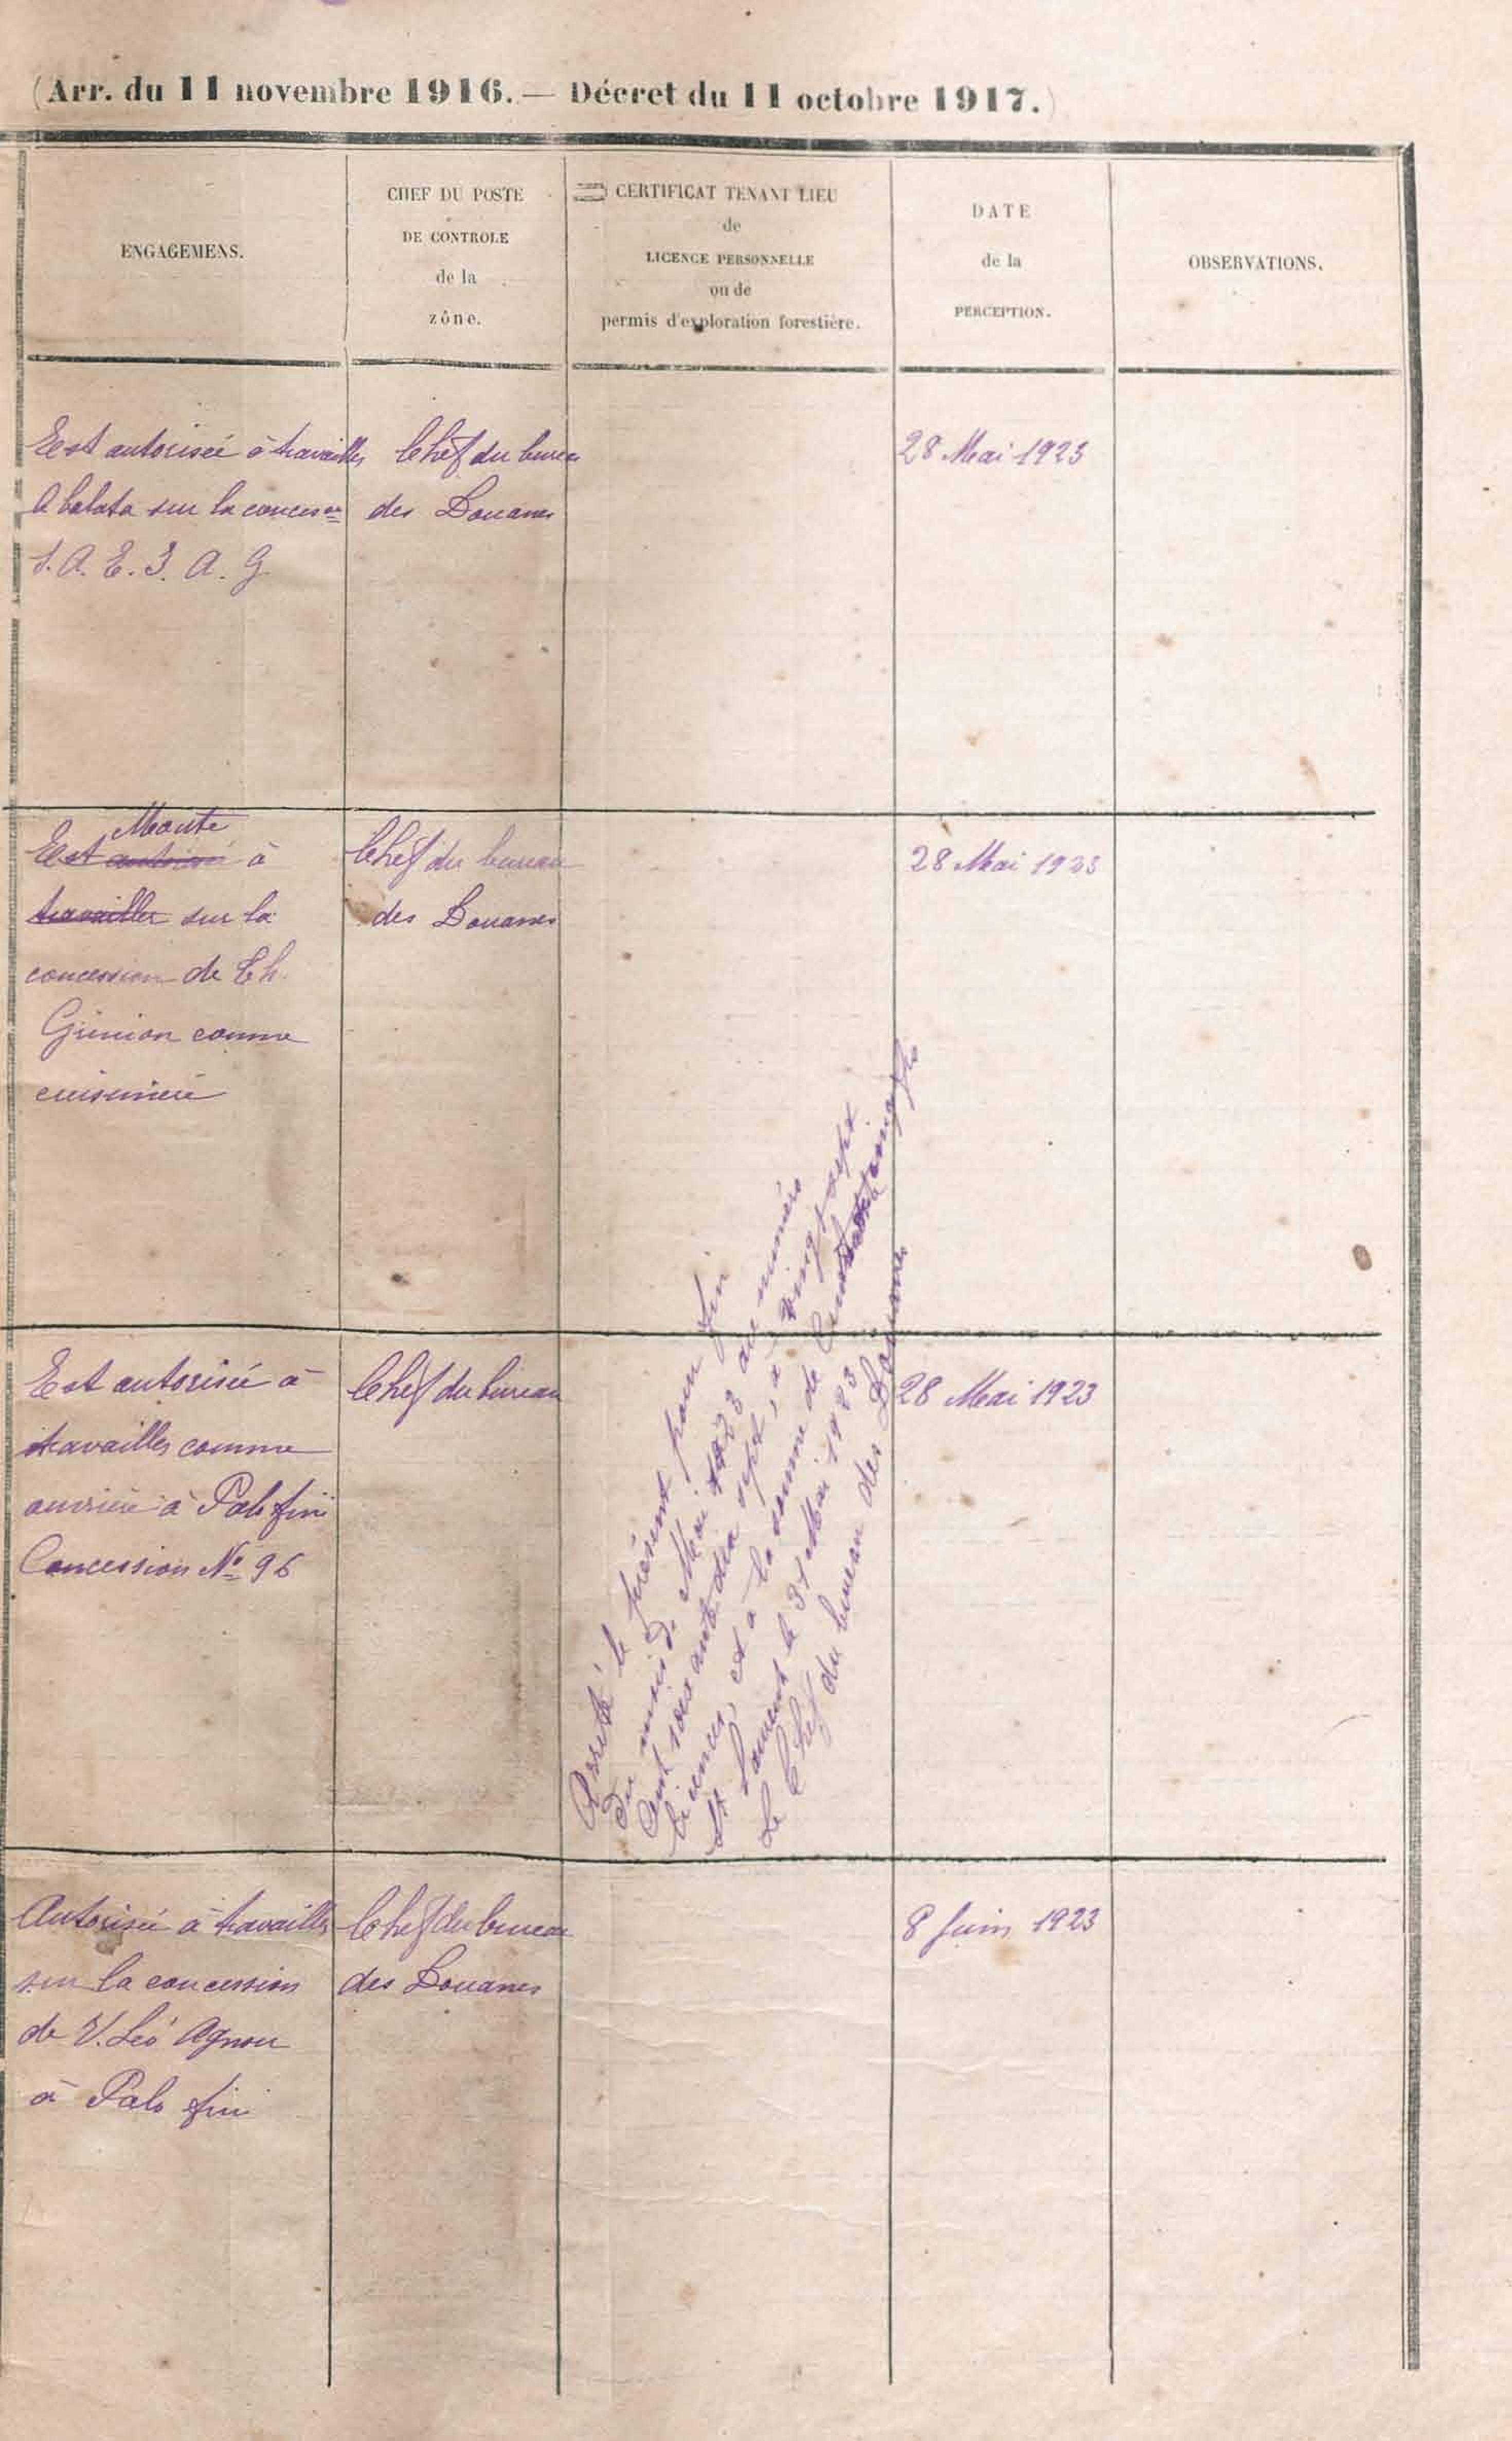 (Arr. du 11 novembre 1916. — Décret du 11 octobre 1917.)
ENGAGEMENS.
CHEF DU POSTE
DE CONTROLE
de la
zône.
CERTIFICAT TENANT LIEU
de
LICENCE PERSONNELLE
ou de
permis d'exploration forestière.
DATE
de la
PERCEPTION.
OBSERVATIONS.
Est autorisée à travailler
balata sur la concess on
S.A.E.J.A.G
Chef du bureau
des Douanes
28 Mai 1923
Monte
Est autorisé à
travailler sur la
concession de Th.
comme
cuisinière
Chef du bureau
des Douanes
28 Mai 1923
Est autorisée à
travailler comme
ouvrière à Palofini
Concession No 96
Chef du bureau
28 Mai 1923
Arrêté le présent pour fin
du mois de Mai 1923 au numéro
Cent soixante dix sept, à vingt sept
licences, et à la somme de
St Laurent le 31 Mai 1923
Le Chef du bureau des Douanes
Autorisée à travailler
sur la concession
de V. Léo Agnou
à Palo fini
Chef du bureau
des Douanes
8 Juin 1923